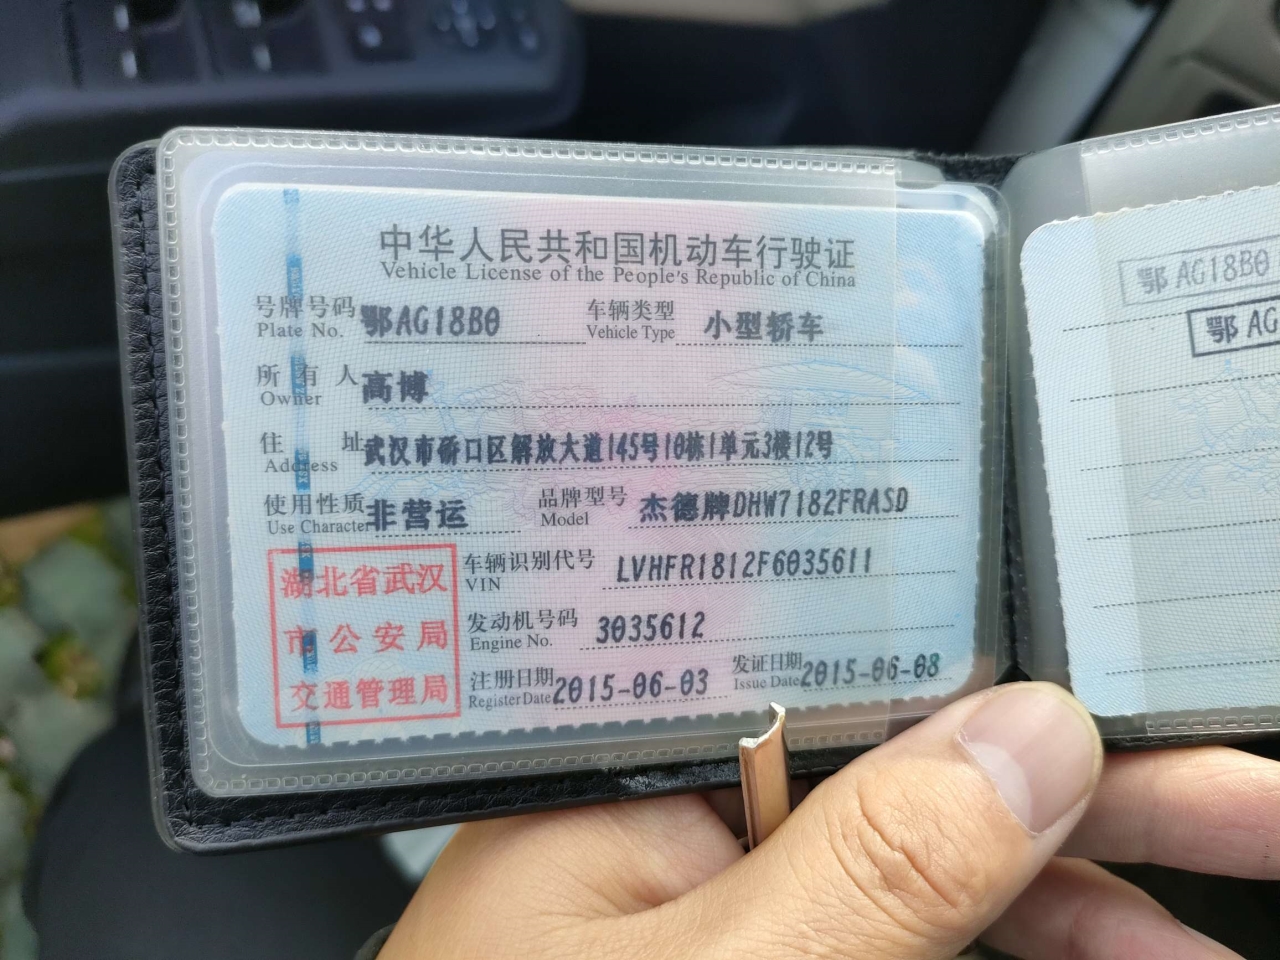 中华人民共和国机动车行驶证
Vehicle License of the People's Republic of China
号牌号码 鄂AG18B0 车辆类型 小型轿车
Plate No. Vehicle Type
所有人 高博
Owner
住址 武汉市硚口区解放大道145号10栋1单元3楼12号
Address
使用性质 非营运 品牌型号 杰德牌DHW7182FRASD
Use Character Model
车辆识别代号 LVHFR1812F6035611
VIN
发动机号码 3035612
Engine No.
注册日期 2015-06-03 发证日期 2015-06-08
Register Date Issue Date
湖北省武汉
市公安局
交通管理局
鄂AG18B0
鄂AG